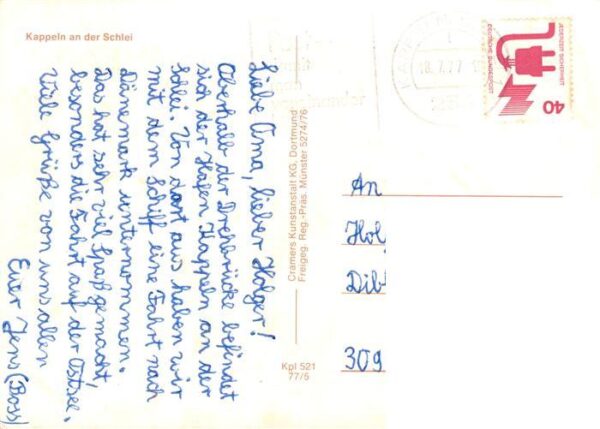 Kappeln an der Schlei
Liebe Oma, lieber Holger!
Oberhalb der Drehbrücke befindet
sich der Hafen Kappeln an der
Schlei. Von dort aus haben wir
mit dem Schiff eine Fahrt nach
Dänemark unternommen.
Das hat sehr viel Spaß gemacht,
besonders die Fahrt auf der Ostsee.
Viele Grüße von uns allen
Euer Jens (Boss)
Cramers Kunstanstalt KG, Dortmund
Freigeg. Reg.-Präs. Münster 5274/76
Kpl 521
77/5
18.7.77
JEDERZEIT SICHERHEIT
DEUTSCHE BUNDESPOST
40
An
Hol
Dib
309